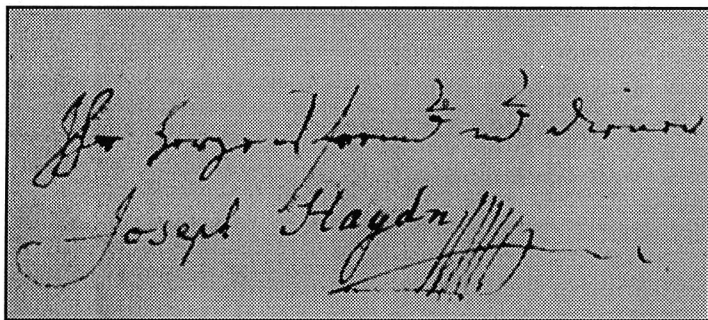 Ihr Herzens freund und diener
Joseph Haydn